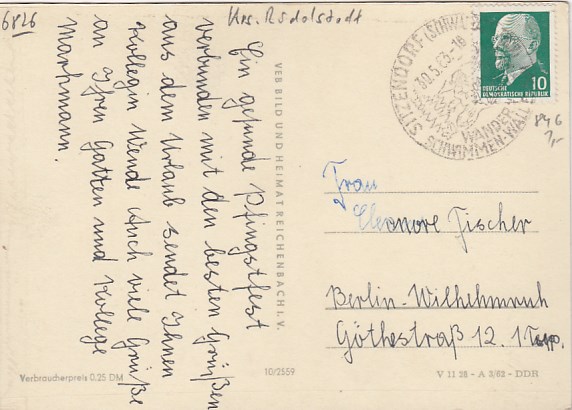 6826
Krs. Rudolstadt
Ein gesunde Pfingstfest
verbunden mit den besten Grüßen
aus dem Urlaub sendet Ihnen
Kollegin Wende Auch viele Grüße
an Ihren Gatten und Kollege
Markmann.
VEB BILD UND HEIMAT REICHENBACH I. V.
SITZENDORF (SCHWARZ
30.5.63-16
WANDER
SCHWIMMEN-WALD
DEUTSCHE
DEMOKRATISCHE REPUBLIK
10
846
7,-
Frau
Eleonore Fischer
Berlin-Wilhelmsruh
Göthestraß 12. 1 Trpp.
Verbraucherpreis 0.25 DM
10/2559
V 11 28 - A 3/62 - DDR